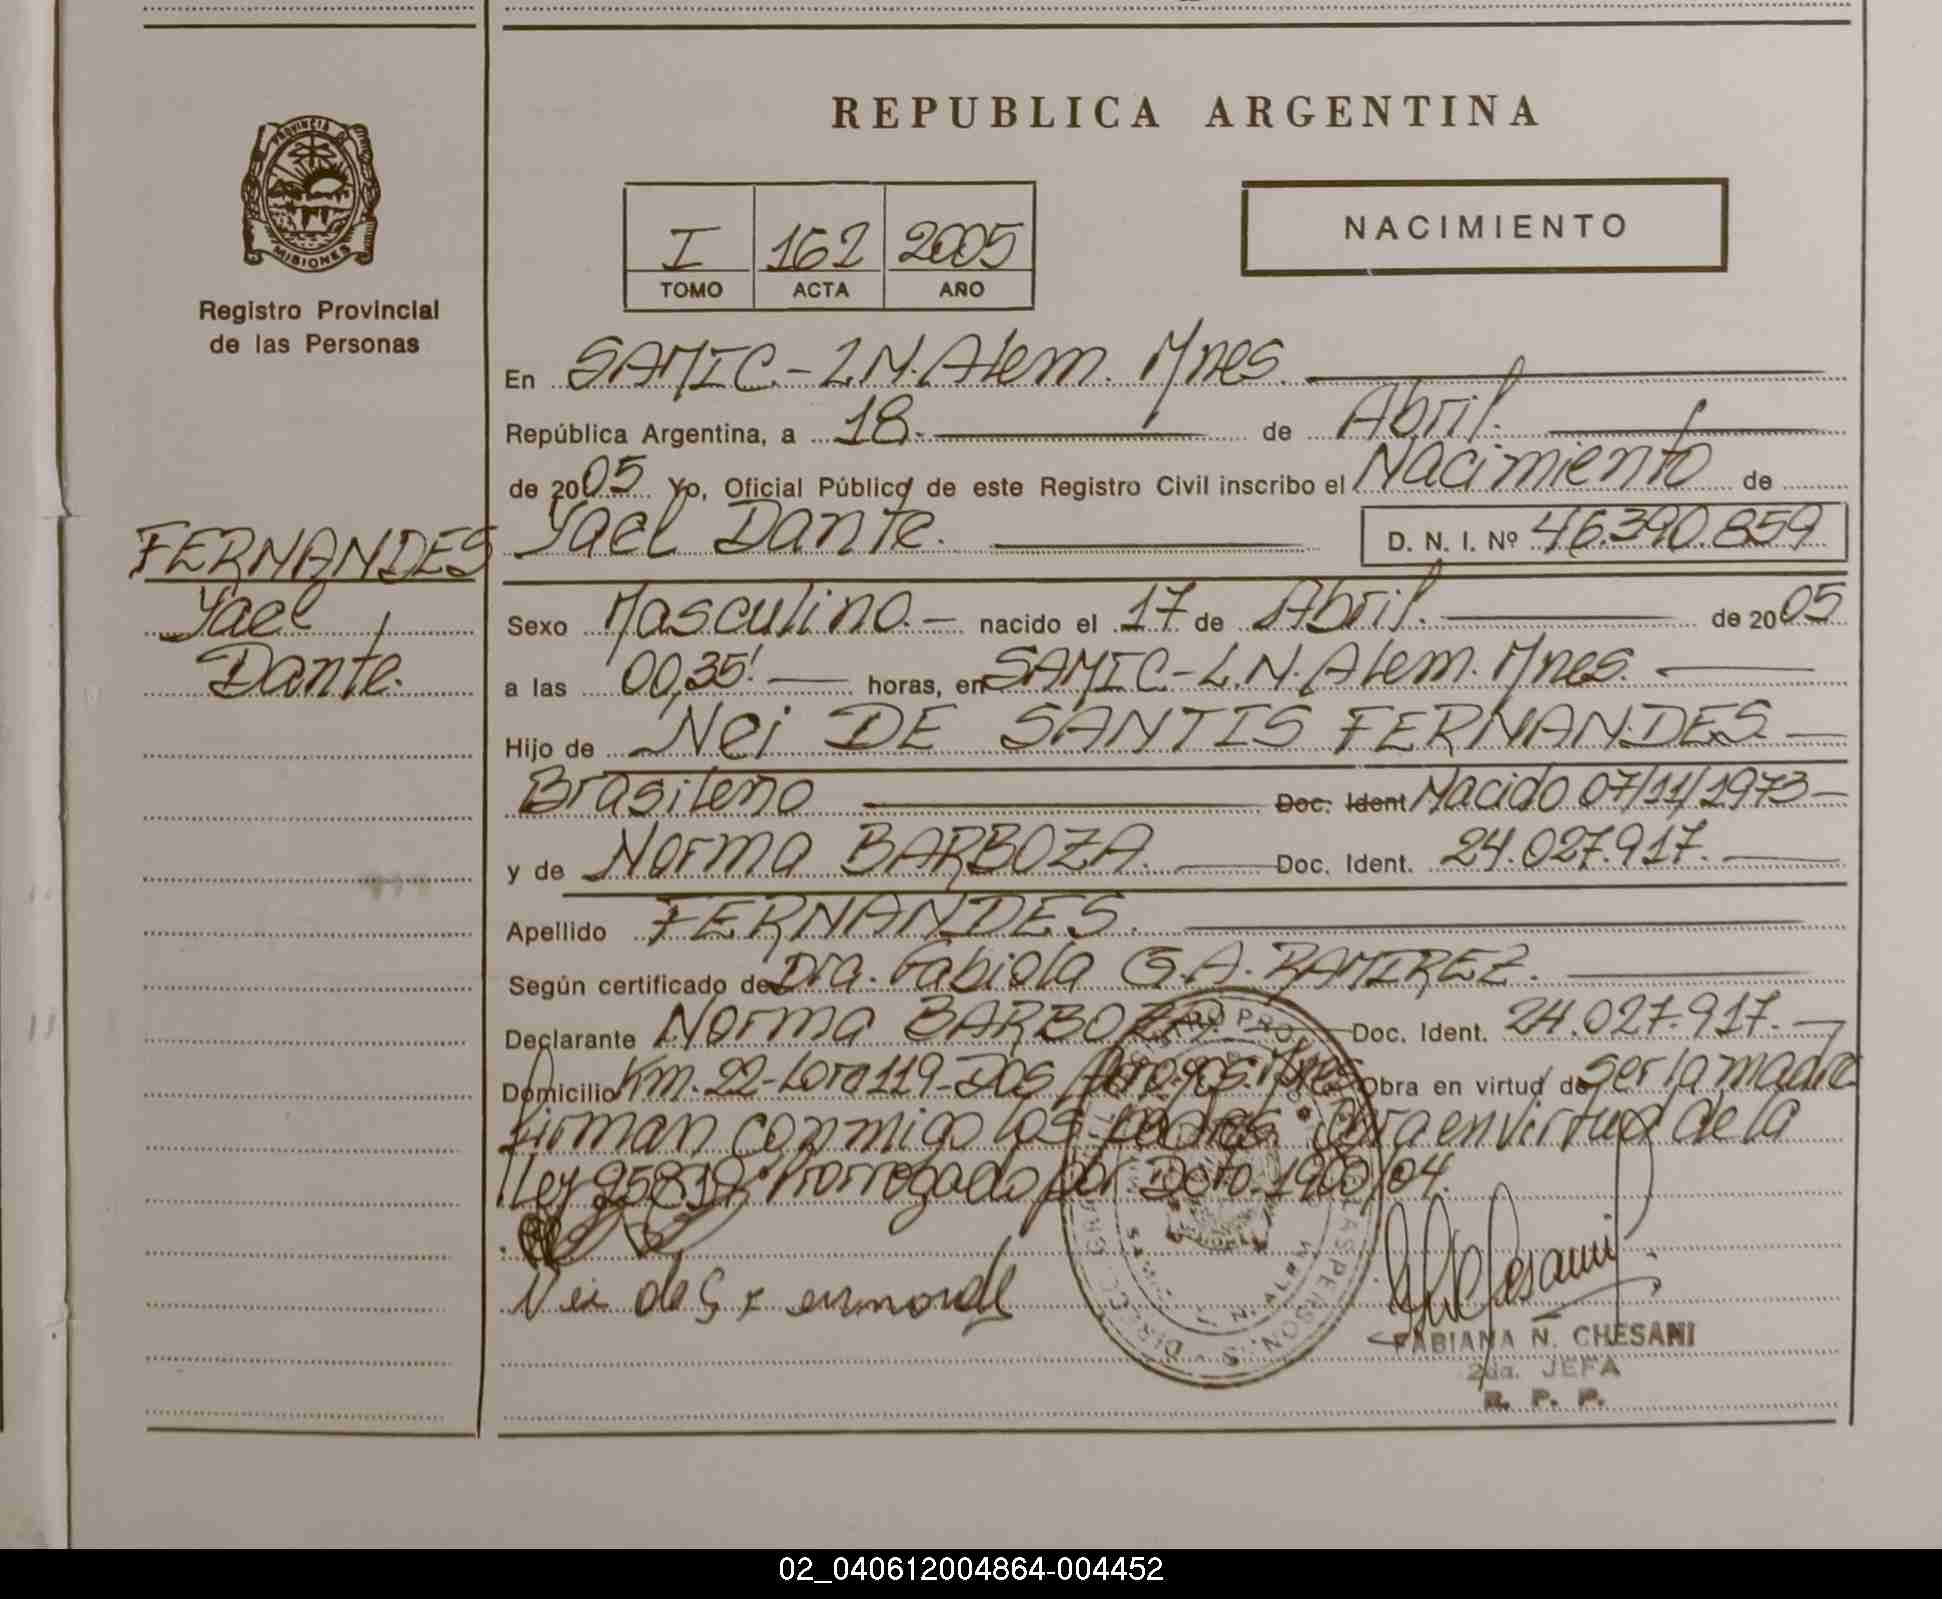 REPUBLICA ARGENTINA
PROVINCIA DE
MISIONES
Registro Provincial
de las Personas
I 162 2005
TOMO ACTA AÑO
NACIMIENTO
En SAMIC.- L.N. Alem. Mnes.
República Argentina, a 18.- de Abril.
de 2005 Yo, Oficial Público de este Registro Civil inscribo el Nacimiento de
FERNANDES
Yael
Dante.
Yael Dante. D. N. I. Nº 46.390.859
Sexo Masculino.- nacido el 17 de Abril. de 2005
a las 00,35' horas, en SAMIC-L.N. Alem. Mnes.
Hijo de Nei DE SANTIS FERNANDES
Brasileno Doc. Ident Nacido 07/11/1973
y de Norma BARBOZA. Doc. Ident. 24.027.917.
Apellido FERNANDES.
Según certificado de Dra. Fabiola G.A. RAMIREZ.
Declarante Norma BARBOZA Doc. Ident. 24.027.917.-
Domicilio Km. 22-Lote 119-Dos Arroyos. Mnes Obra en virtud de ser la madre
firman conmigo los padres. Obra en virtud de la
Ley 25819. Prorrogado por Dcto. 1900/04.
FABIANA N. CHESANI
2da. JEFA
R. P. P.
02_040612004864-004452